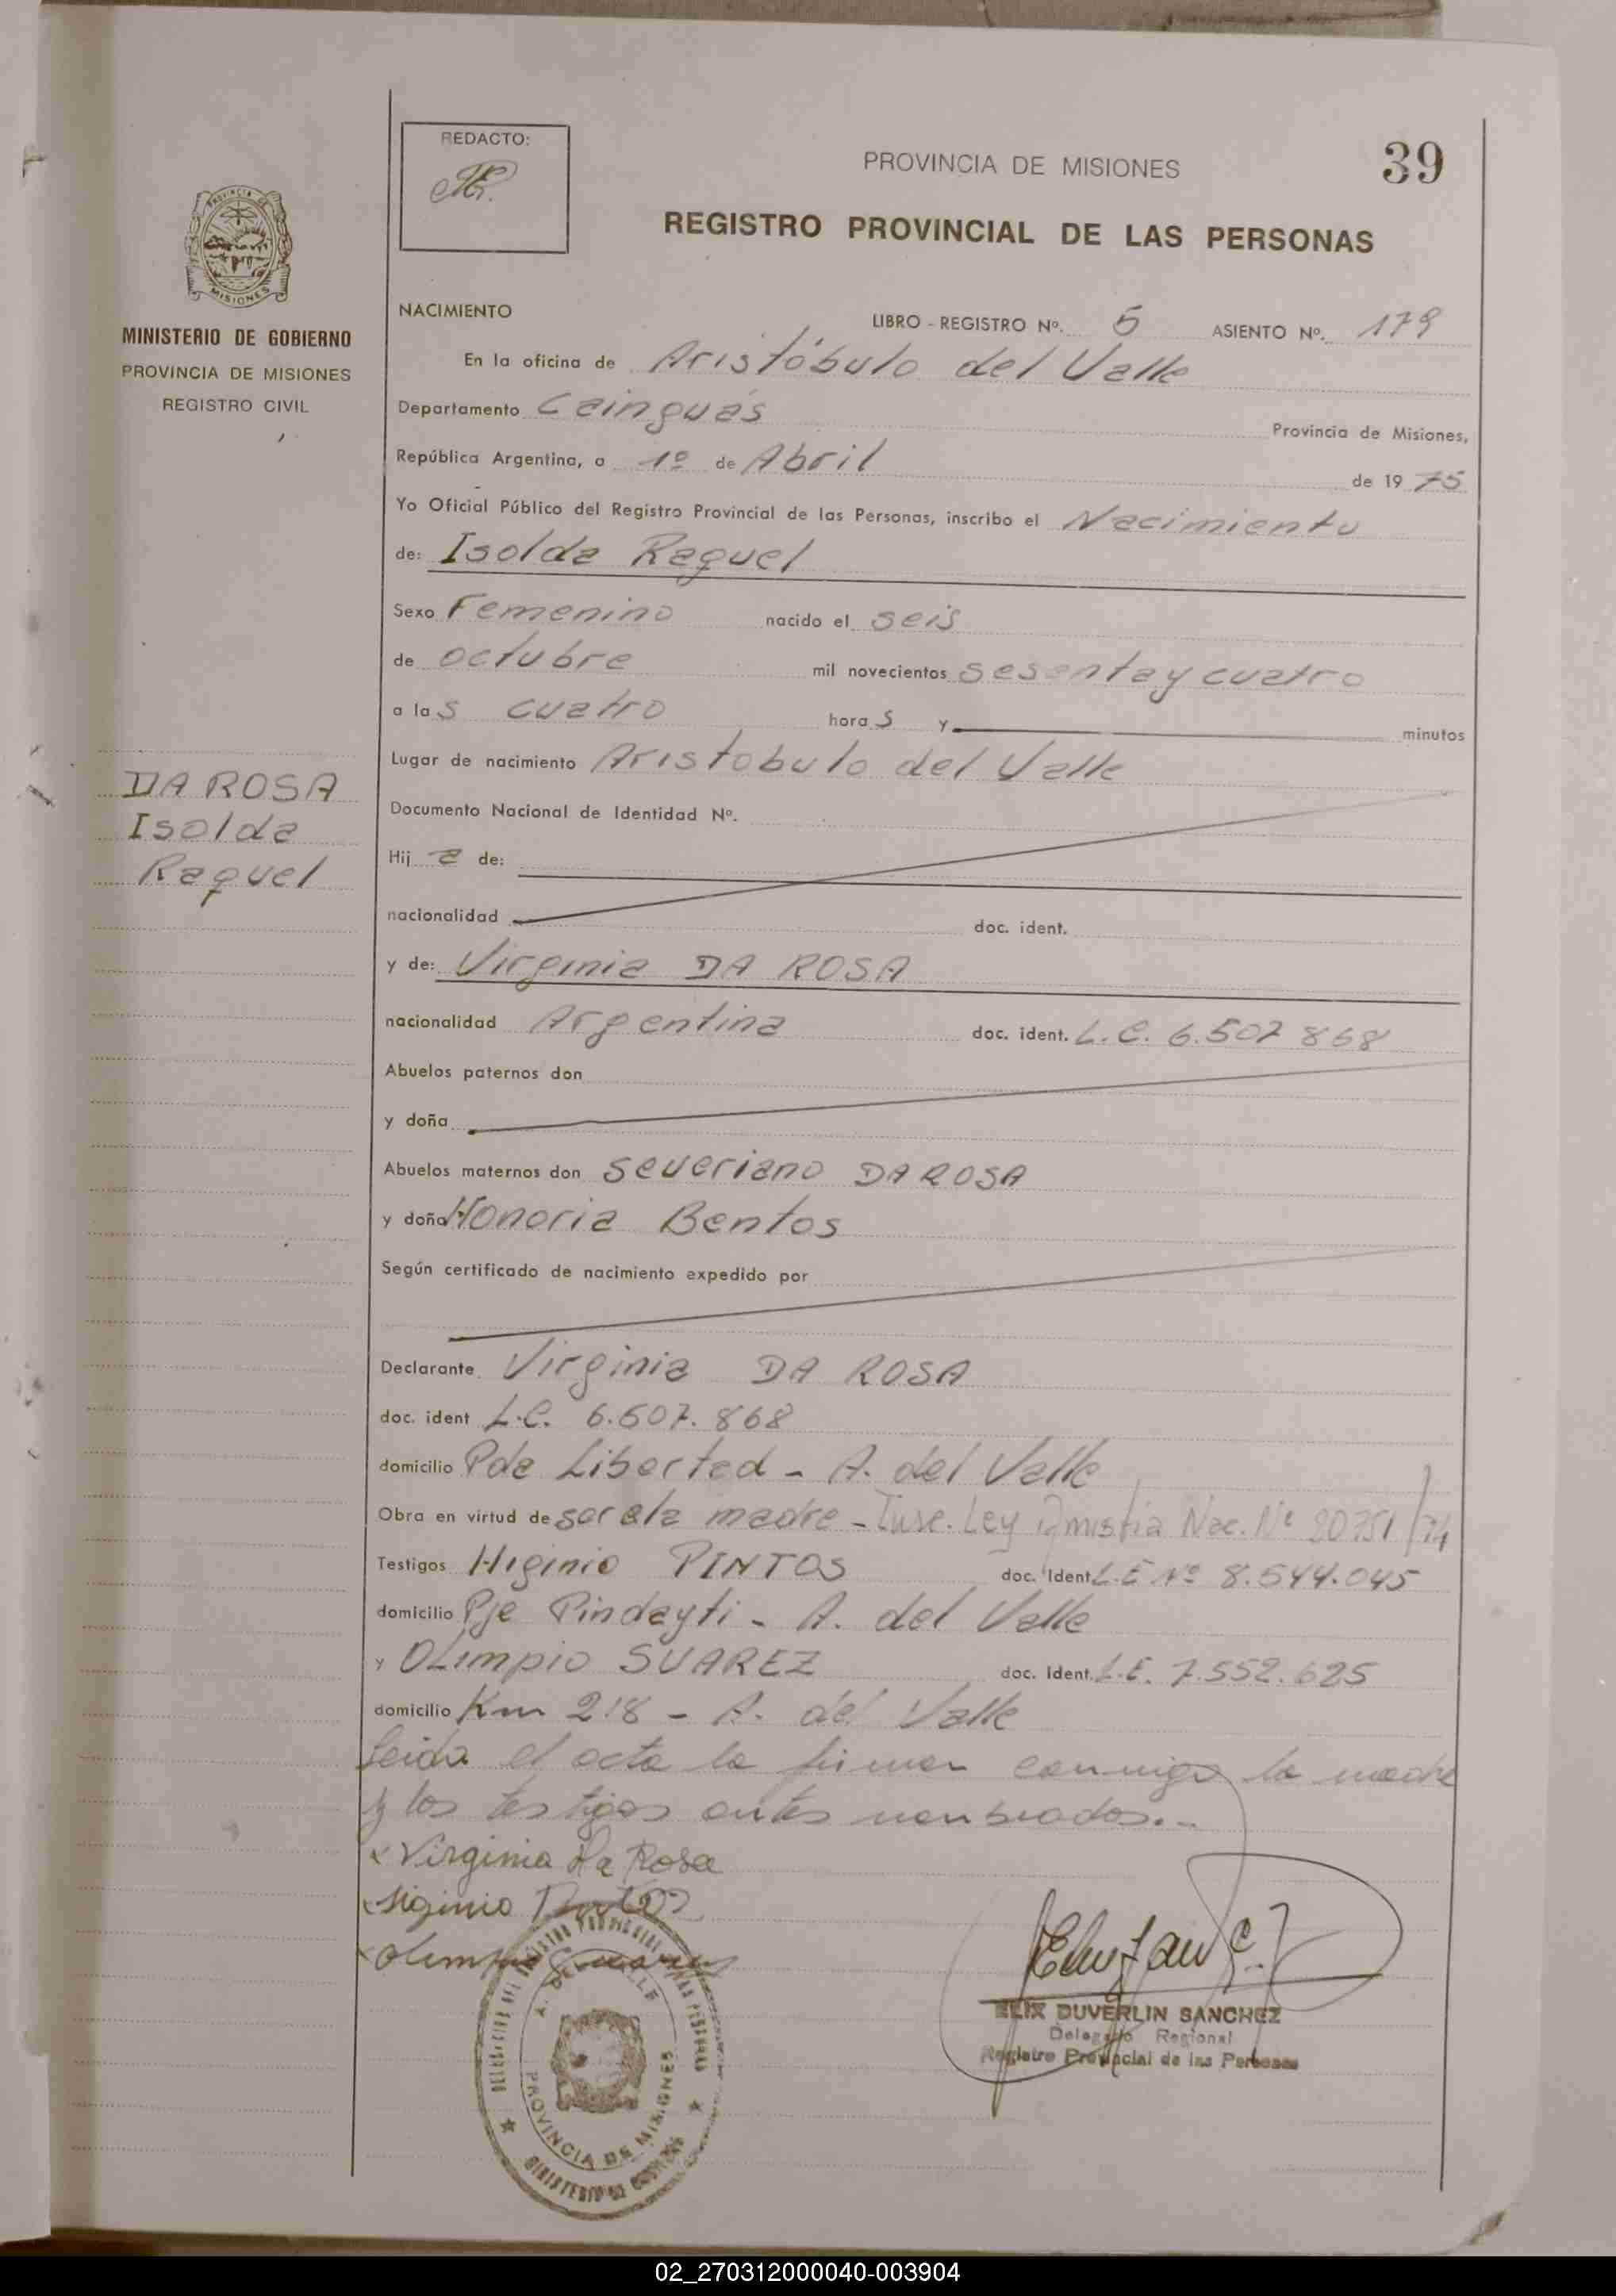 REDACTO:
PROVINCIA DE MISIONES
39
REGISTRO PROVINCIAL DE LAS PERSONAS
MISIONES
MINISTERIO DE GOBIERNO
PROVINCIA DE MISIONES
REGISTRO CIVIL
DA ROSA
Isolda
Raquel
NACIMIENTO LIBRO - REGISTRO Nº. 5 ASIENTO Nº. 179
En la oficina de Aristóbulo del Valle
Departamento Cainguás Provincia de Misiones,
República Argentina, a 1º de Abril de 1975
Yo Oficial Público del Registro Provincial de las Personas, inscribo el Nacimiento
de: Isolda Raquel
Sexo Femenino nacido el seis
de octubre mil novecientos sesenta y cuatro
a las cuatro horas y minutos
Lugar de nacimiento Aristobulo del Valle
Documento Nacional de Identidad Nº.
Hija de:
nacionalidad doc. ident.
y de: Virginia DA ROSA
nacionalidad Argentina doc. ident. L.C. 6.507 868
Abuelos paternos don
y doña
Abuelos maternos don Severiano DA ROSA
y doña Honoria Bentos
Según certificado de nacimiento expedido por
Declarante Virginia DA ROSA
doc. ident L.C. 6.507.868
domicilio Pda Libertad - A. del Valle
Obra en virtud de ser la madre - Insc. Ley Amistia Nac. Nº 20751/74
Testigos Higinio PINTOS doc. Ident. L.E Nº 8.544.045
domicilio Pje Pindayti - A. del Valle
y OLimpio SUAREZ doc. Ident. L.E. 7.552.625
domicilio Km 218 - A. del Valle
Leida el acta la firman conmigo la madre
y los testigos antes nombrados.-
x Virginia Da Rosa
x Higinio Pintos
x Olimpio Suarez
ELIX DUVERLIN SANCHEZ
Delegado Regional
Registro Provincial de las Personas
A. DEL VALLE
PROVINCIA DE MISIONES
MINISTERIO DE GOBIERNO
02_270312000040-003904